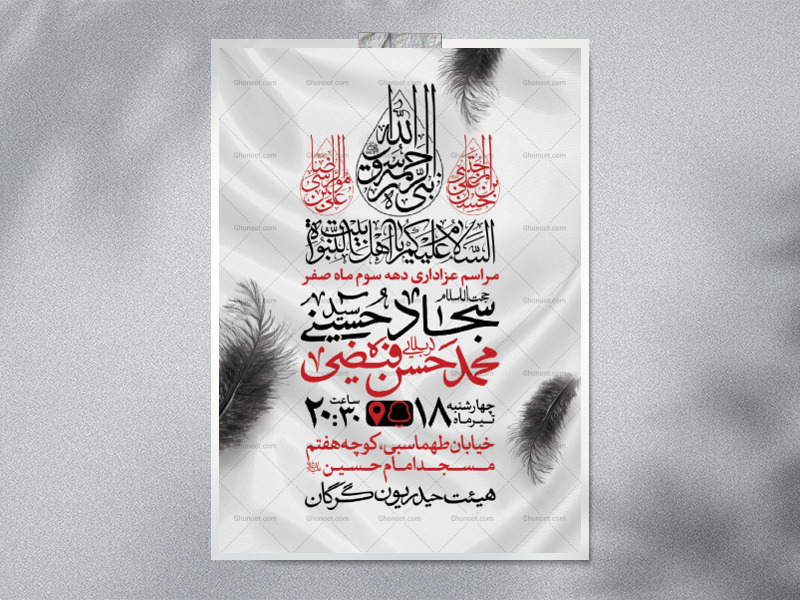 نبی الرحمه رسول الله
السلام علیکم یا اهل بیت النبوة
مراسم عزاداری دهه سوم ماه صفر
حجت‌الاسلام
سید سجاد حسینی
کربلایی
محمدحسن فیضی
چهارشنبه ۱۸ تیرماه ساعت ۲۰:۳۰
خیابان طهماسبی، کوچه هفتم
مسجد امام حسین
هیئت حیدریون گرگان
Ghonoot.com